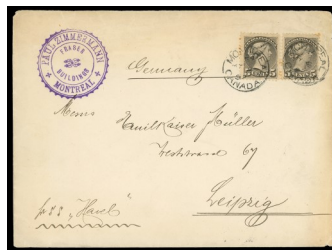 PAUL ZIMMERMANN
FRASER
BUILDINGS
MONTREAL
CANADA
Germany
Messrs
Müller
Weststrasse 67
Leipzig
per S.S. "Havel"